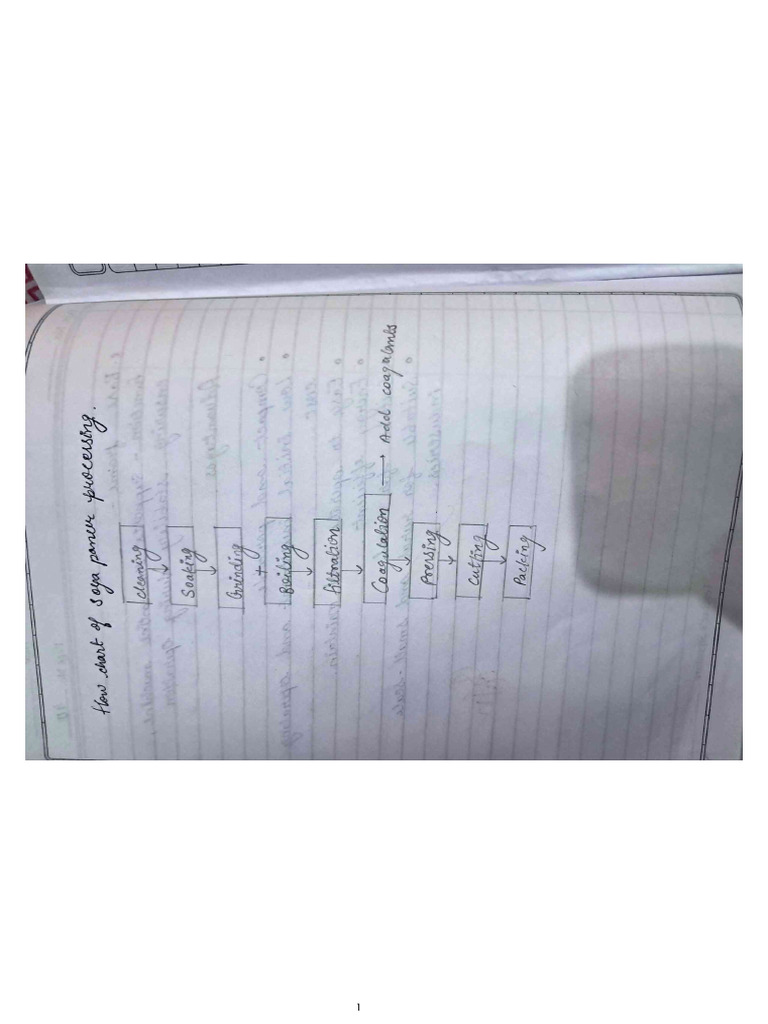 Flow chart of Soya paneer processing.
Cleaning
Soaking
Grinding
Boiling
filtration
Coagulation → Add coagulants
Pressing
Cutting
Packing
1